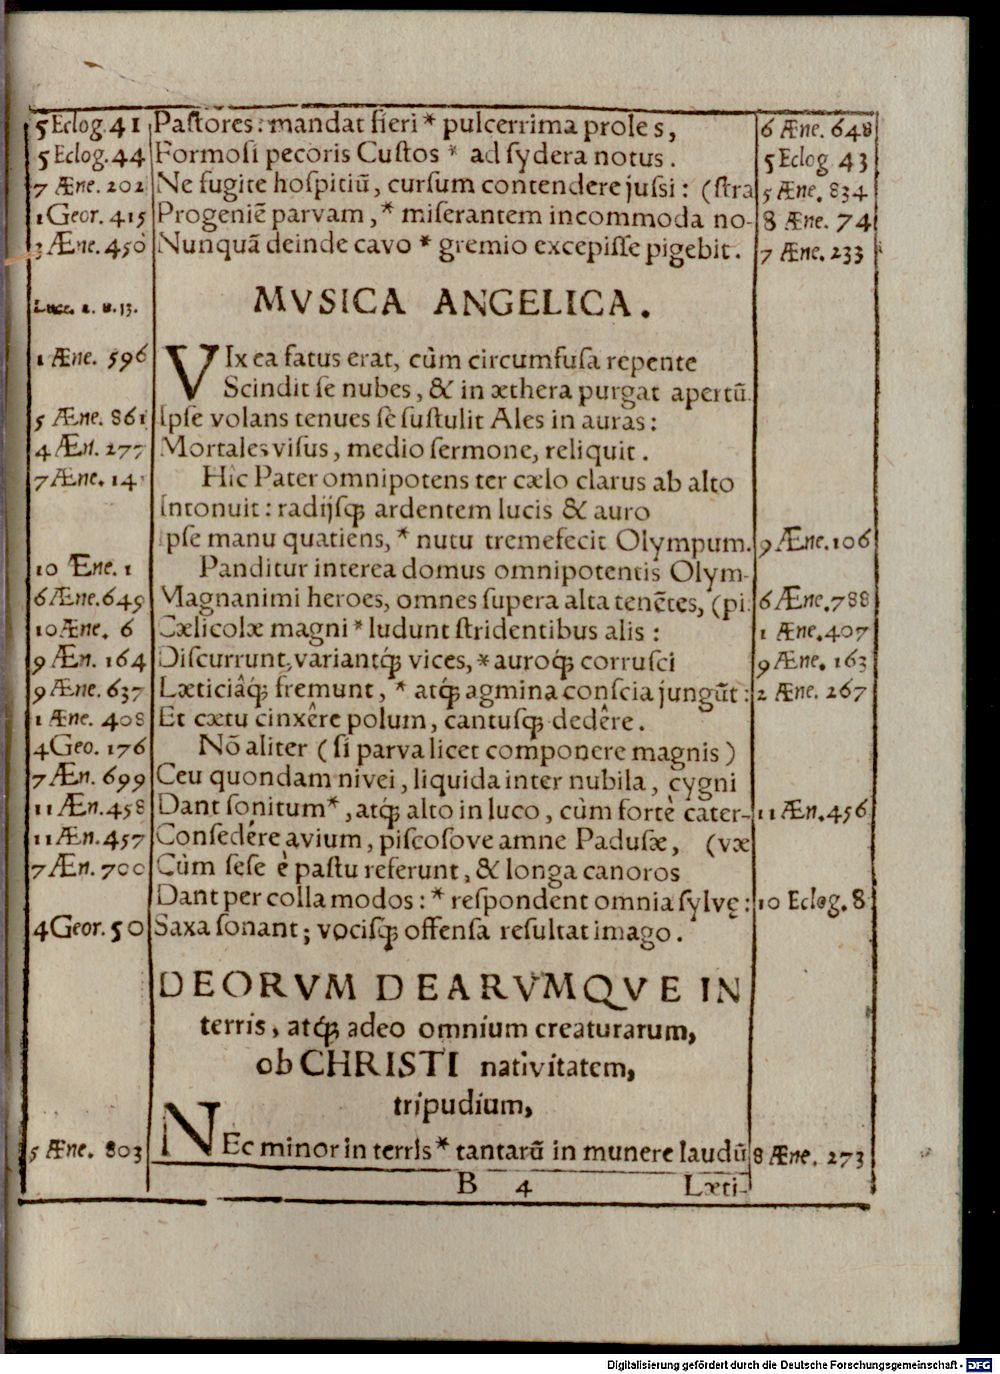 5 Eclog. 41 Pastores: mandat fieri * pulcerrima proles, 6 Æne. 648
5 Eclog. 44 Formosi pecoris Custos * ad sydera notus. 5 Eclog 43
7 Æne. 202 Ne fugite hospitiũ, cursum contendere jussi: (stra 5 Æne. 834
1 Geor. 415 Progeniẽ parvam, * miserantem incommoda no- 8 Æne. 74
3 Æne. 450 Nunquã deinde cavo * gremio excepisse pigebit. 7 Æne. 233
Luce. 2. v. 13. MVSICA ANGELICA.
1 Æne. 596 VIx ea fatus erat, cùm circumfusa repente
Scindit se nubes, & in æthera purgat apertũ.
5 Æne. 861 Ipse volans tenues se sustulit Ales in auras:
4 Æn. 277 Mortales visus, medio sermone, reliquit.
7 Æne. 14 Hîc Pater omnipotens ter cælo clarus ab alto
Intonuit: radijsq́; ardentem lucis & auro
Ipse manu quatiens, * nutu tremefecit Olympum. 9 Æne. 106
10 Æne. 1 Panditur interea domus omnipotentis Olym-
6 Æne. 649 Magnanimi heroes, omnes supera alta tenẽtes, (pi 6 Æne. 788
10 Æne. 6 Cælicolæ magni * ludunt stridentibus alis: 1 Æne. 407
9 Æn. 164 Discurrunt, variantq́; vices, * auroq́; corrusci 9 Æne. 163
9 Æne. 637 Læticiâq́; fremunt, * atq́; agmina conscia jungũt: 2 Æne. 267
1 Æne. 408 Et cætu cinxêre polum, cantusq́; dedêre.
4 Geo. 176 Nõ aliter (si parva licet componere magnis)
7 Æn. 699 Ceu quondam nivei, liquida inter nubila, cygni
11 Æn. 458 Dant sonitum *, atq́; alto in luco, cùm fortè cater- 11 Æn. 456
11 Æn. 457 Consedêre avium, piscosove amne Padusæ, (væ
7 Æn. 700 Cùm sese è pastu referunt, & longa canoros
Dant per colla modos: * respondent omnia sylvę: 10 Eclog. 8
4 Geor. 50 Saxa sonant; vocisq́; offensa resultat imago.
DEORVM DEARVMQVE IN
terris, atq́; adeo omnium creaturarum,
ob CHRISTI nativitatem,
tripudium,
5 Æne. 803 NEc minor in terris * tantarũ in munere laudũ 8 Æne. 273
B 4 Læti-
Digitalisierung gefördert durch die Deutsche Forschungsgemeinschaft - DFG